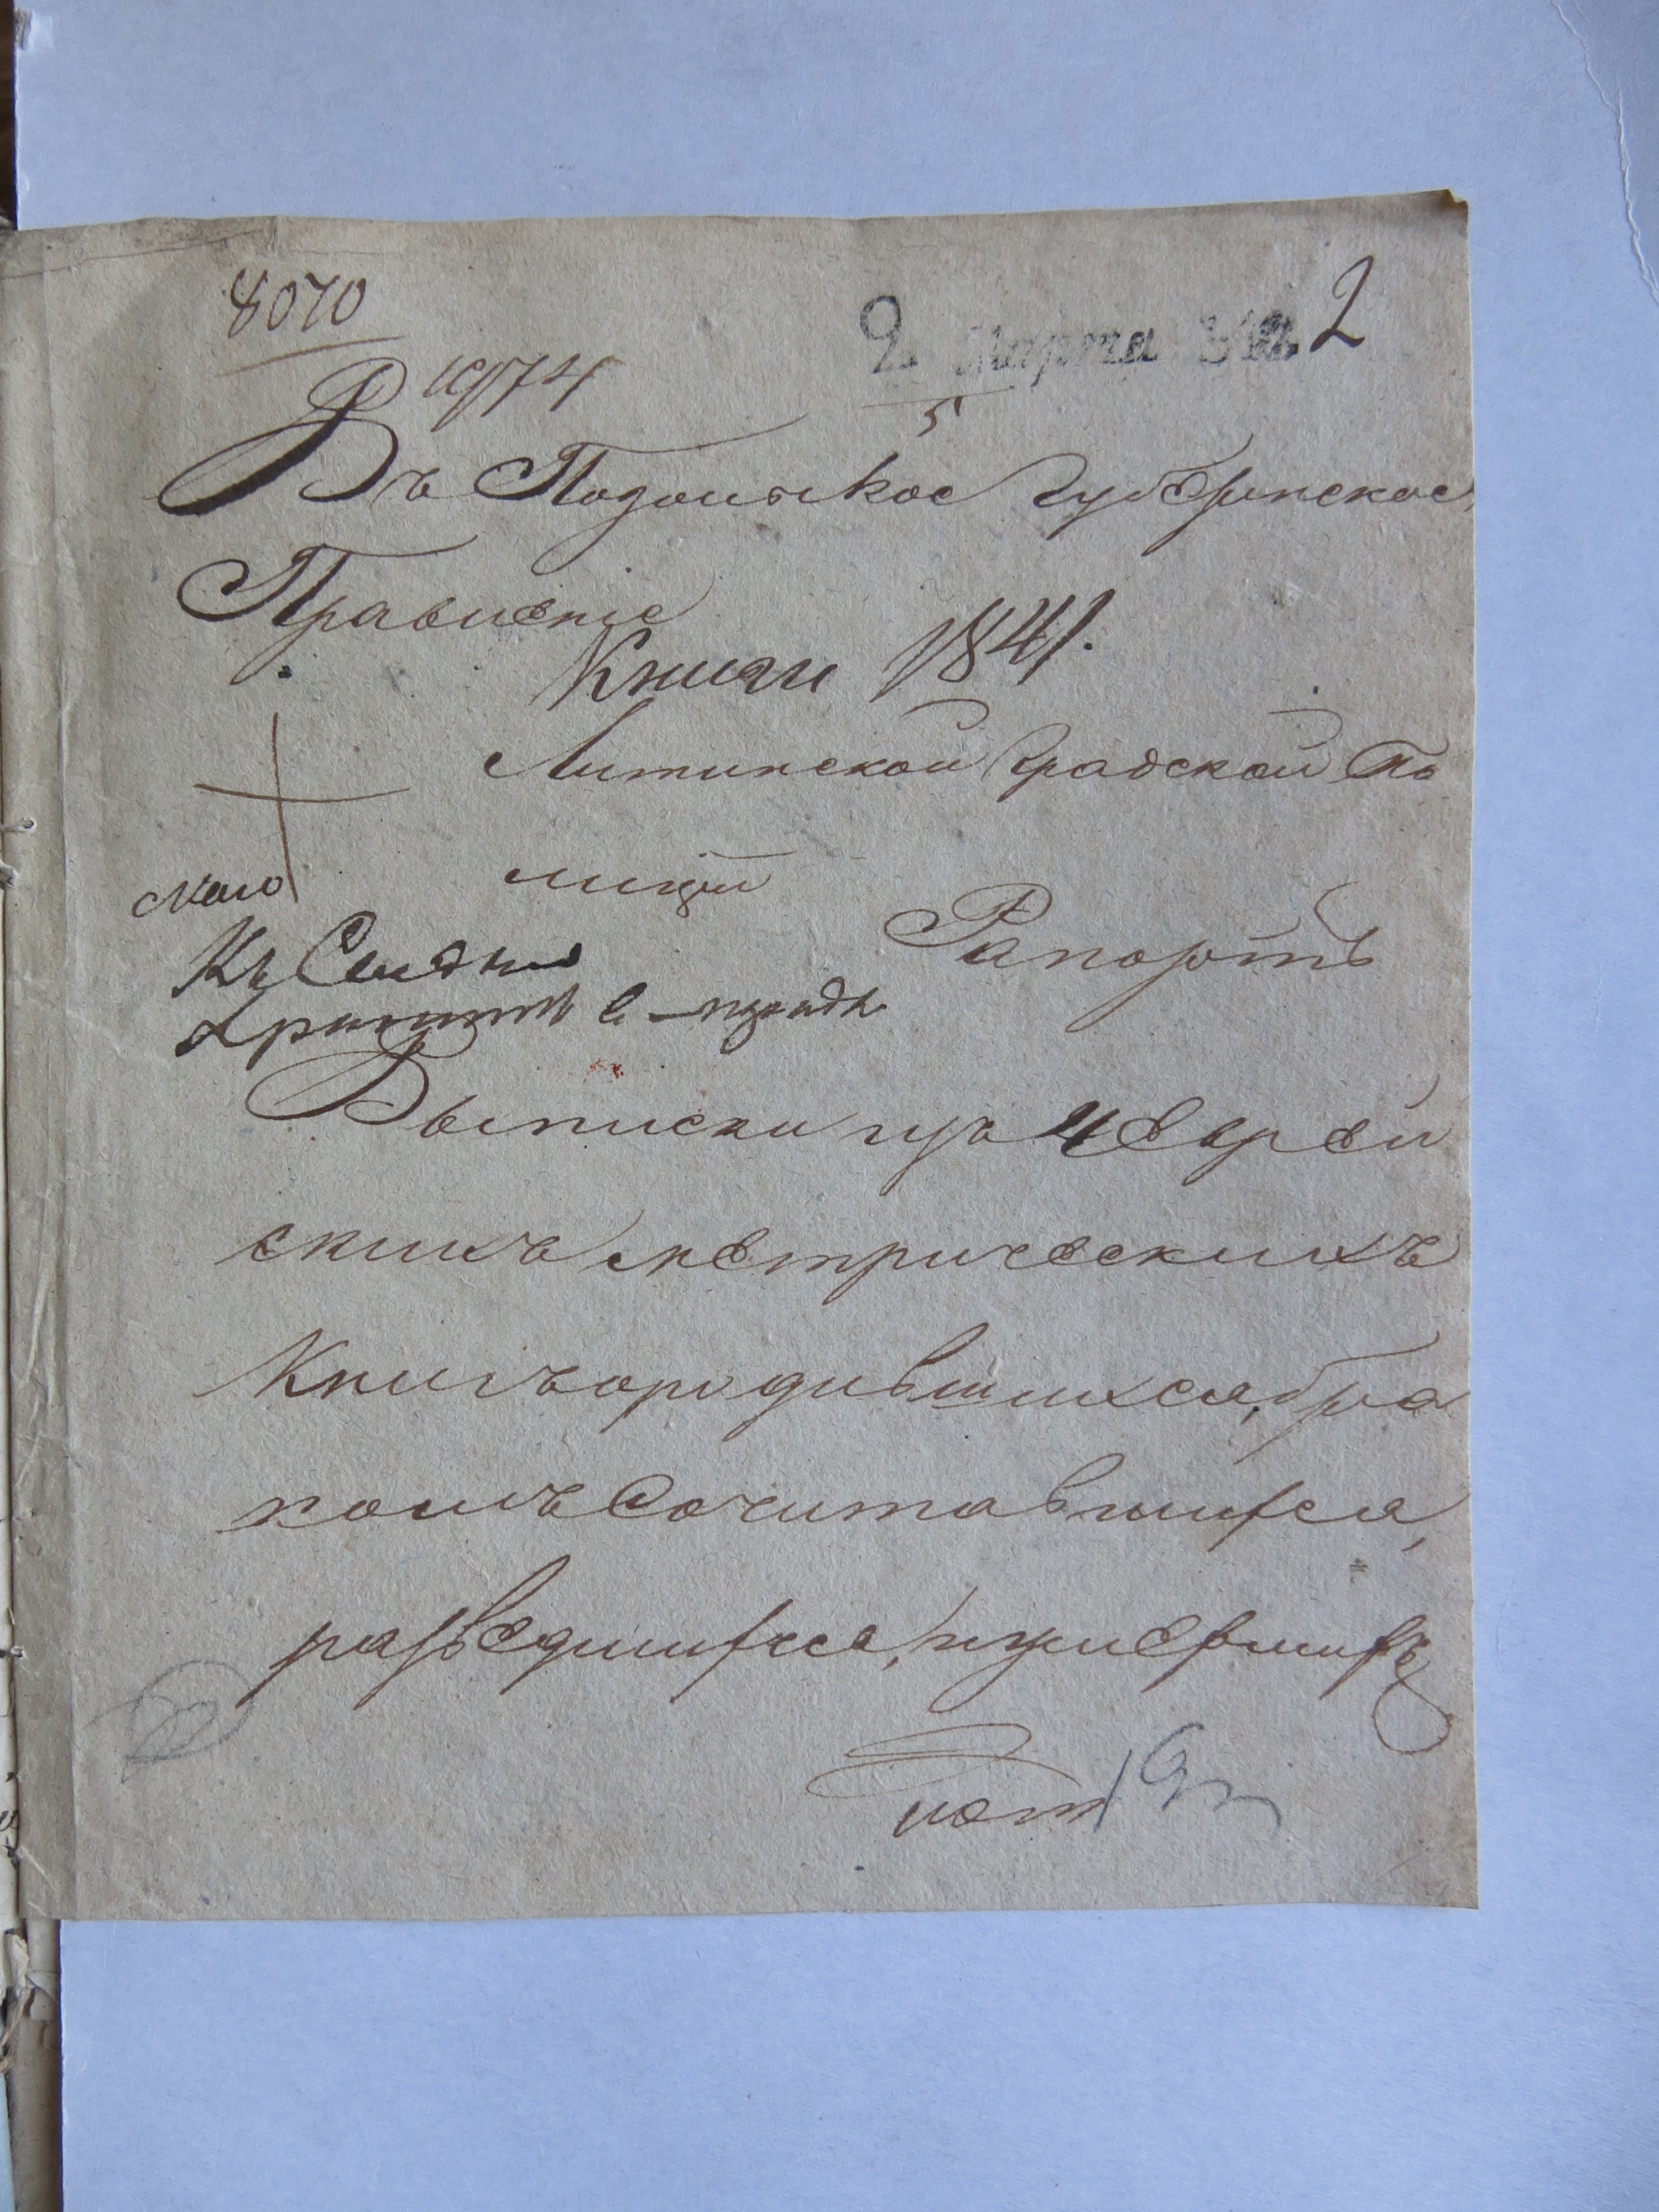 8070
2 Марта 2
5
Въ Подольское Губернское
Правленіе
Книги 1841.
Литинской Градской По
лиціи
Рапортъ
Къ
Выписки изъ 4 Еврей
скихъ метрическихъ
Книгъ о родившихся, бра
комъ Сочитавшихся,
разведшихся, и умершихъ